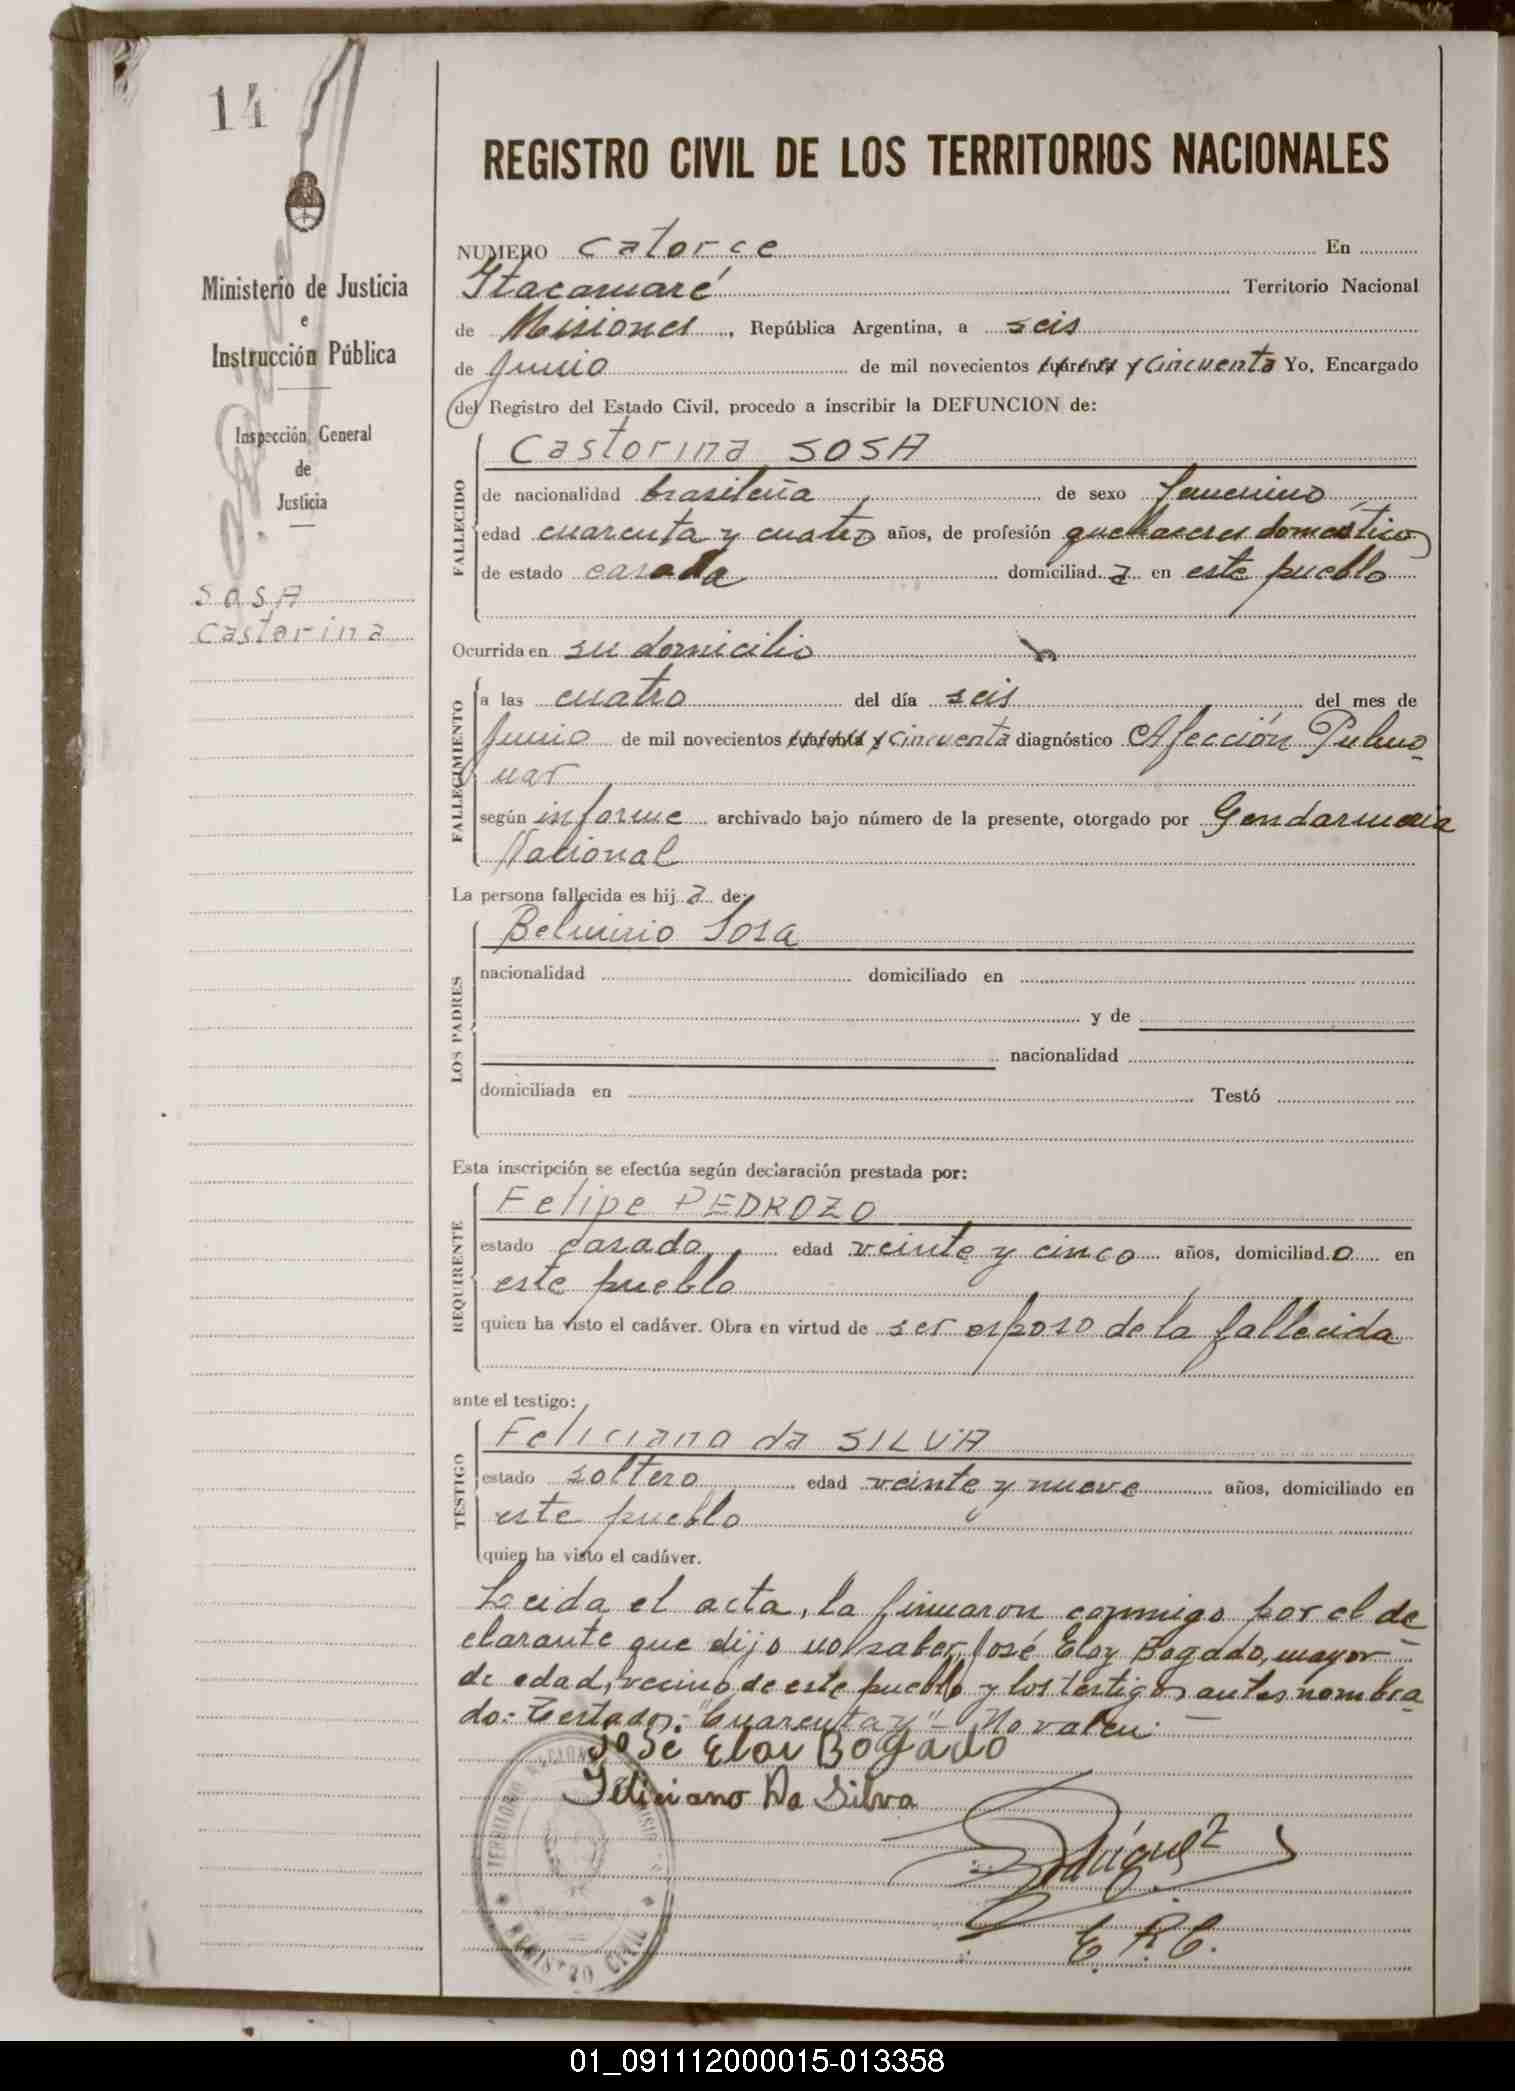 14
Ministerio de Justicia
e
Instrucción Pública
Inspección General
de
Justicia
SOSA
Castorina
REGISTRO CIVIL DE LOS TERRITORIOS NACIONALES
NUMERO Catorce En
Itacaruaré Territorio Nacional
de Misiones, República Argentina, a seis
de Junio de mil novecientos cuarenta y cincuenta Yo, Encargado
del Registro del Estado Civil, procedo a inscribir la DEFUNCION de:
FALLECIDO
Castorina SOSA
de nacionalidad brasileña de sexo femenino
edad cuarenta y cuatro años, de profesión quehaceres domestico
de estado casada domiciliad a en este pueblo
Ocurrida en su domicilio
FALLECIMIENTO
a las cuatro del día seis del mes de
Junio de mil novecientos cuarenta y cincuenta diagnóstico Afección Pulmo
nar
según informe archivado bajo número de la presente, otorgado por Gendarmeria
Nacional
La persona fallecida es hij a de:
LOS PADRES
Belmirio Sosa
nacionalidad domiciliado en
y de
nacionalidad
domiciliada en Testó
Esta inscripción se efectúa según declaración prestada por:
REQUIRENTE
Felipe PEDROZO
estado casado edad veinte y cinco años, domiciliad o en
este pueblo
quien ha visto el cadáver. Obra en virtud de ser esposo de la fallecida
ante el testigo:
TESTIGO
Feliciano da SILVA
estado soltero edad veinte y nueve años, domiciliado en
este pueblo
quien ha visto el cadáver.
Leida el acta, la firmaron conmigo por el de
clarante que dijo no saber, José Eloy Bogado, mayor
de edad, vecino de este pueblo y los testigos antes nombra
do: Testado: "Cuarenta y" - No valen.
José Eloy Bogado
Feliciano Da Silva
Rodríguez
E. R. C.
TERRITORIO NACIONAL
REGISTRO CIVIL
01_091112000015-013358